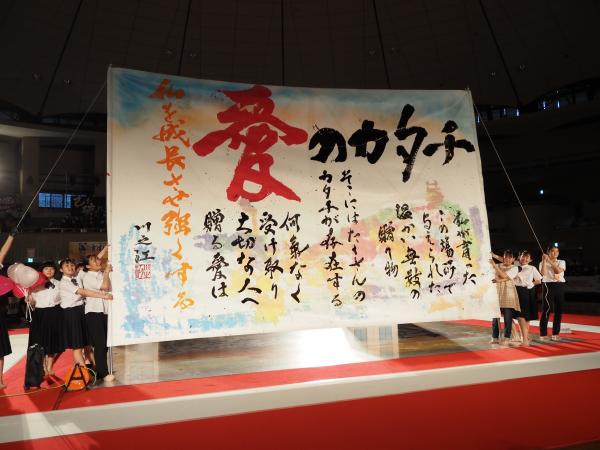 愛のカタチ
私が育った
この場所で
与えられた
温かい無数の
贈り物
そこにはたくさんの
カタチが存在する
何気なく
受け取り
大切な人へ
贈る愛は
私を成長させ強くする
川之江